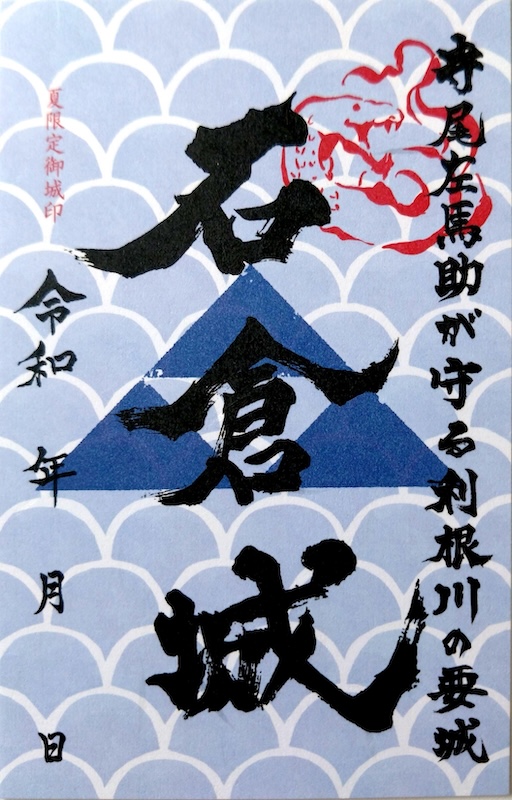 寺尾左馬助が守る利根川の要城
石倉城
夏限定御城印
令和 年 月 日